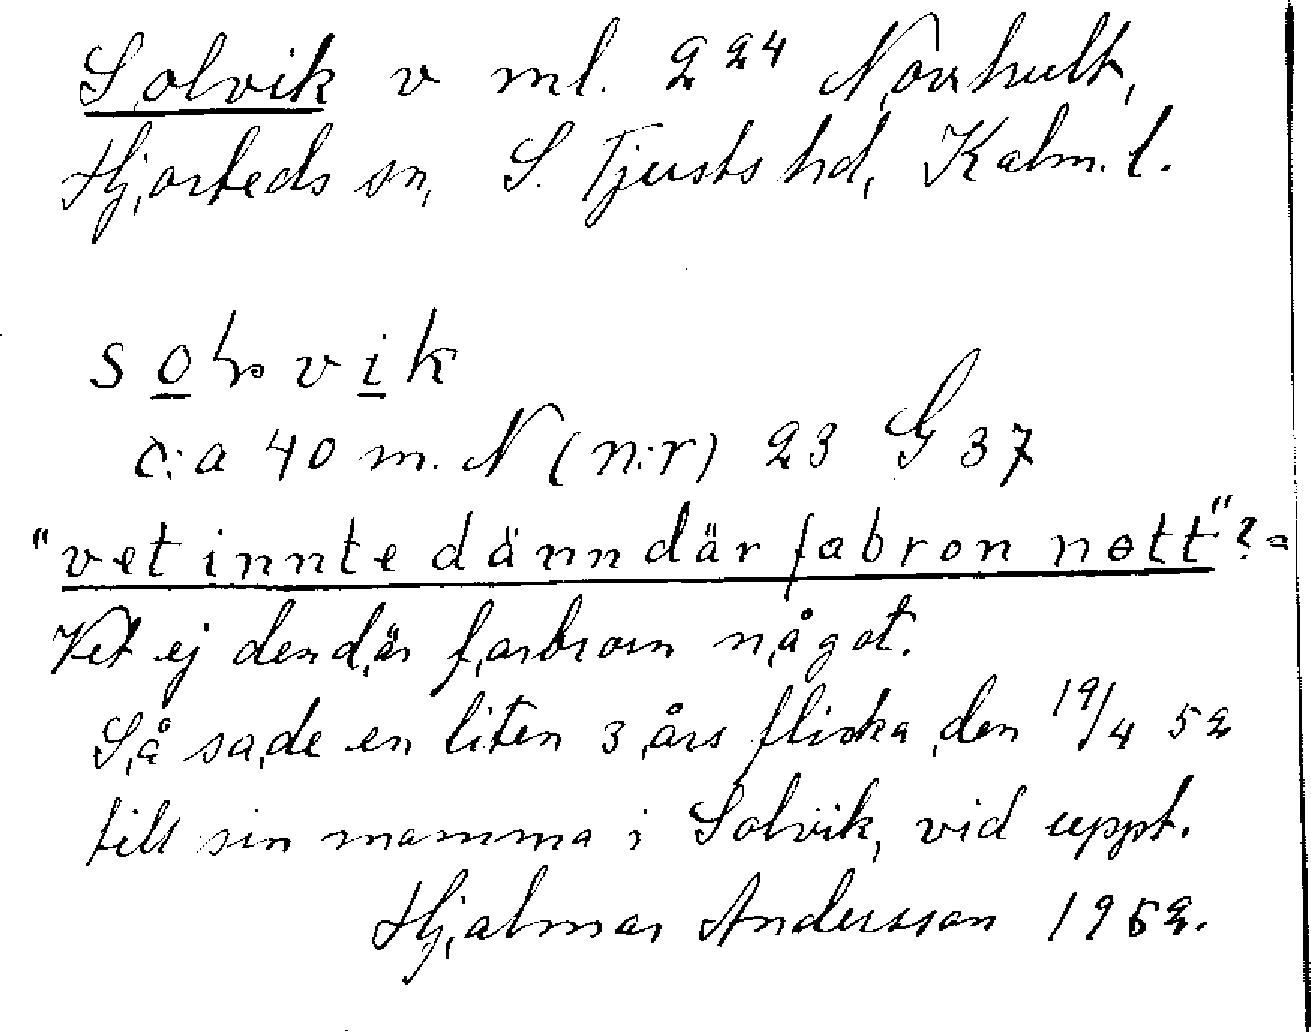 Solvik v ml. 2 24 Norrhult,
Hjorteds sn, S. Tjusts hd, Kalm. l.
solvik
c:a 40 m. N (n:r) 23 G 37
"vet innte dänn där fabron nott"? =
Vet ej den där farbrorn något.
Så sade en liten 3 års flicka den 19/4 52
till sin mamma i Solvik, vid uppt.
Hjalmar Andersson 1952.